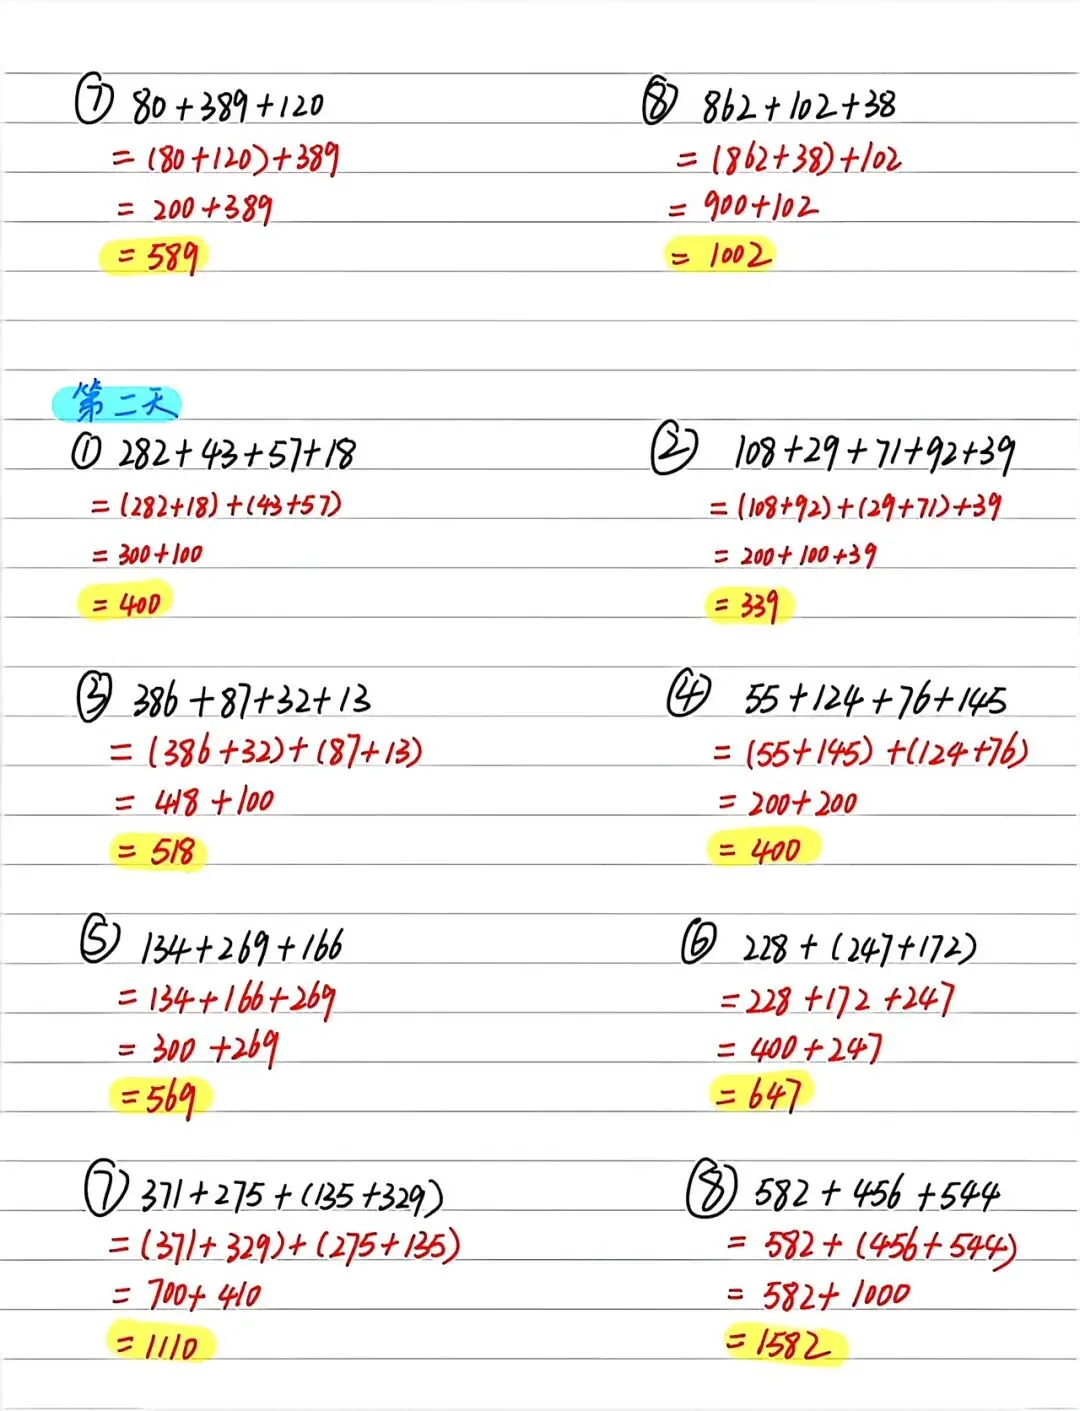 ⑦ 80+389+120
=(80+120)+389
=200+389
=589
⑧ 862+102+38
=(862+38)+102
=900+102
=1002
第二天
① 282+43+57+18
=(282+18)+(43+57)
=300+100
=400
② 108+29+71+92+39
=(108+92)+(29+71)+39
=200+100+39
=339
③ 386+87+32+13
=(386+32)+(87+13)
=418+100
=518
④ 55+124+76+145
=(55+145)+(124+76)
=200+200
=400
⑤ 134+269+166
=134+166+269
=300+269
=569
⑥ 228+(247+172)
=228+172+247
=400+247
=647
⑦ 371+275+(135+329)
=(371+329)+(275+135)
=700+410
=1110
⑧ 582+456+544
=582+(456+544)
=582+1000
=1582